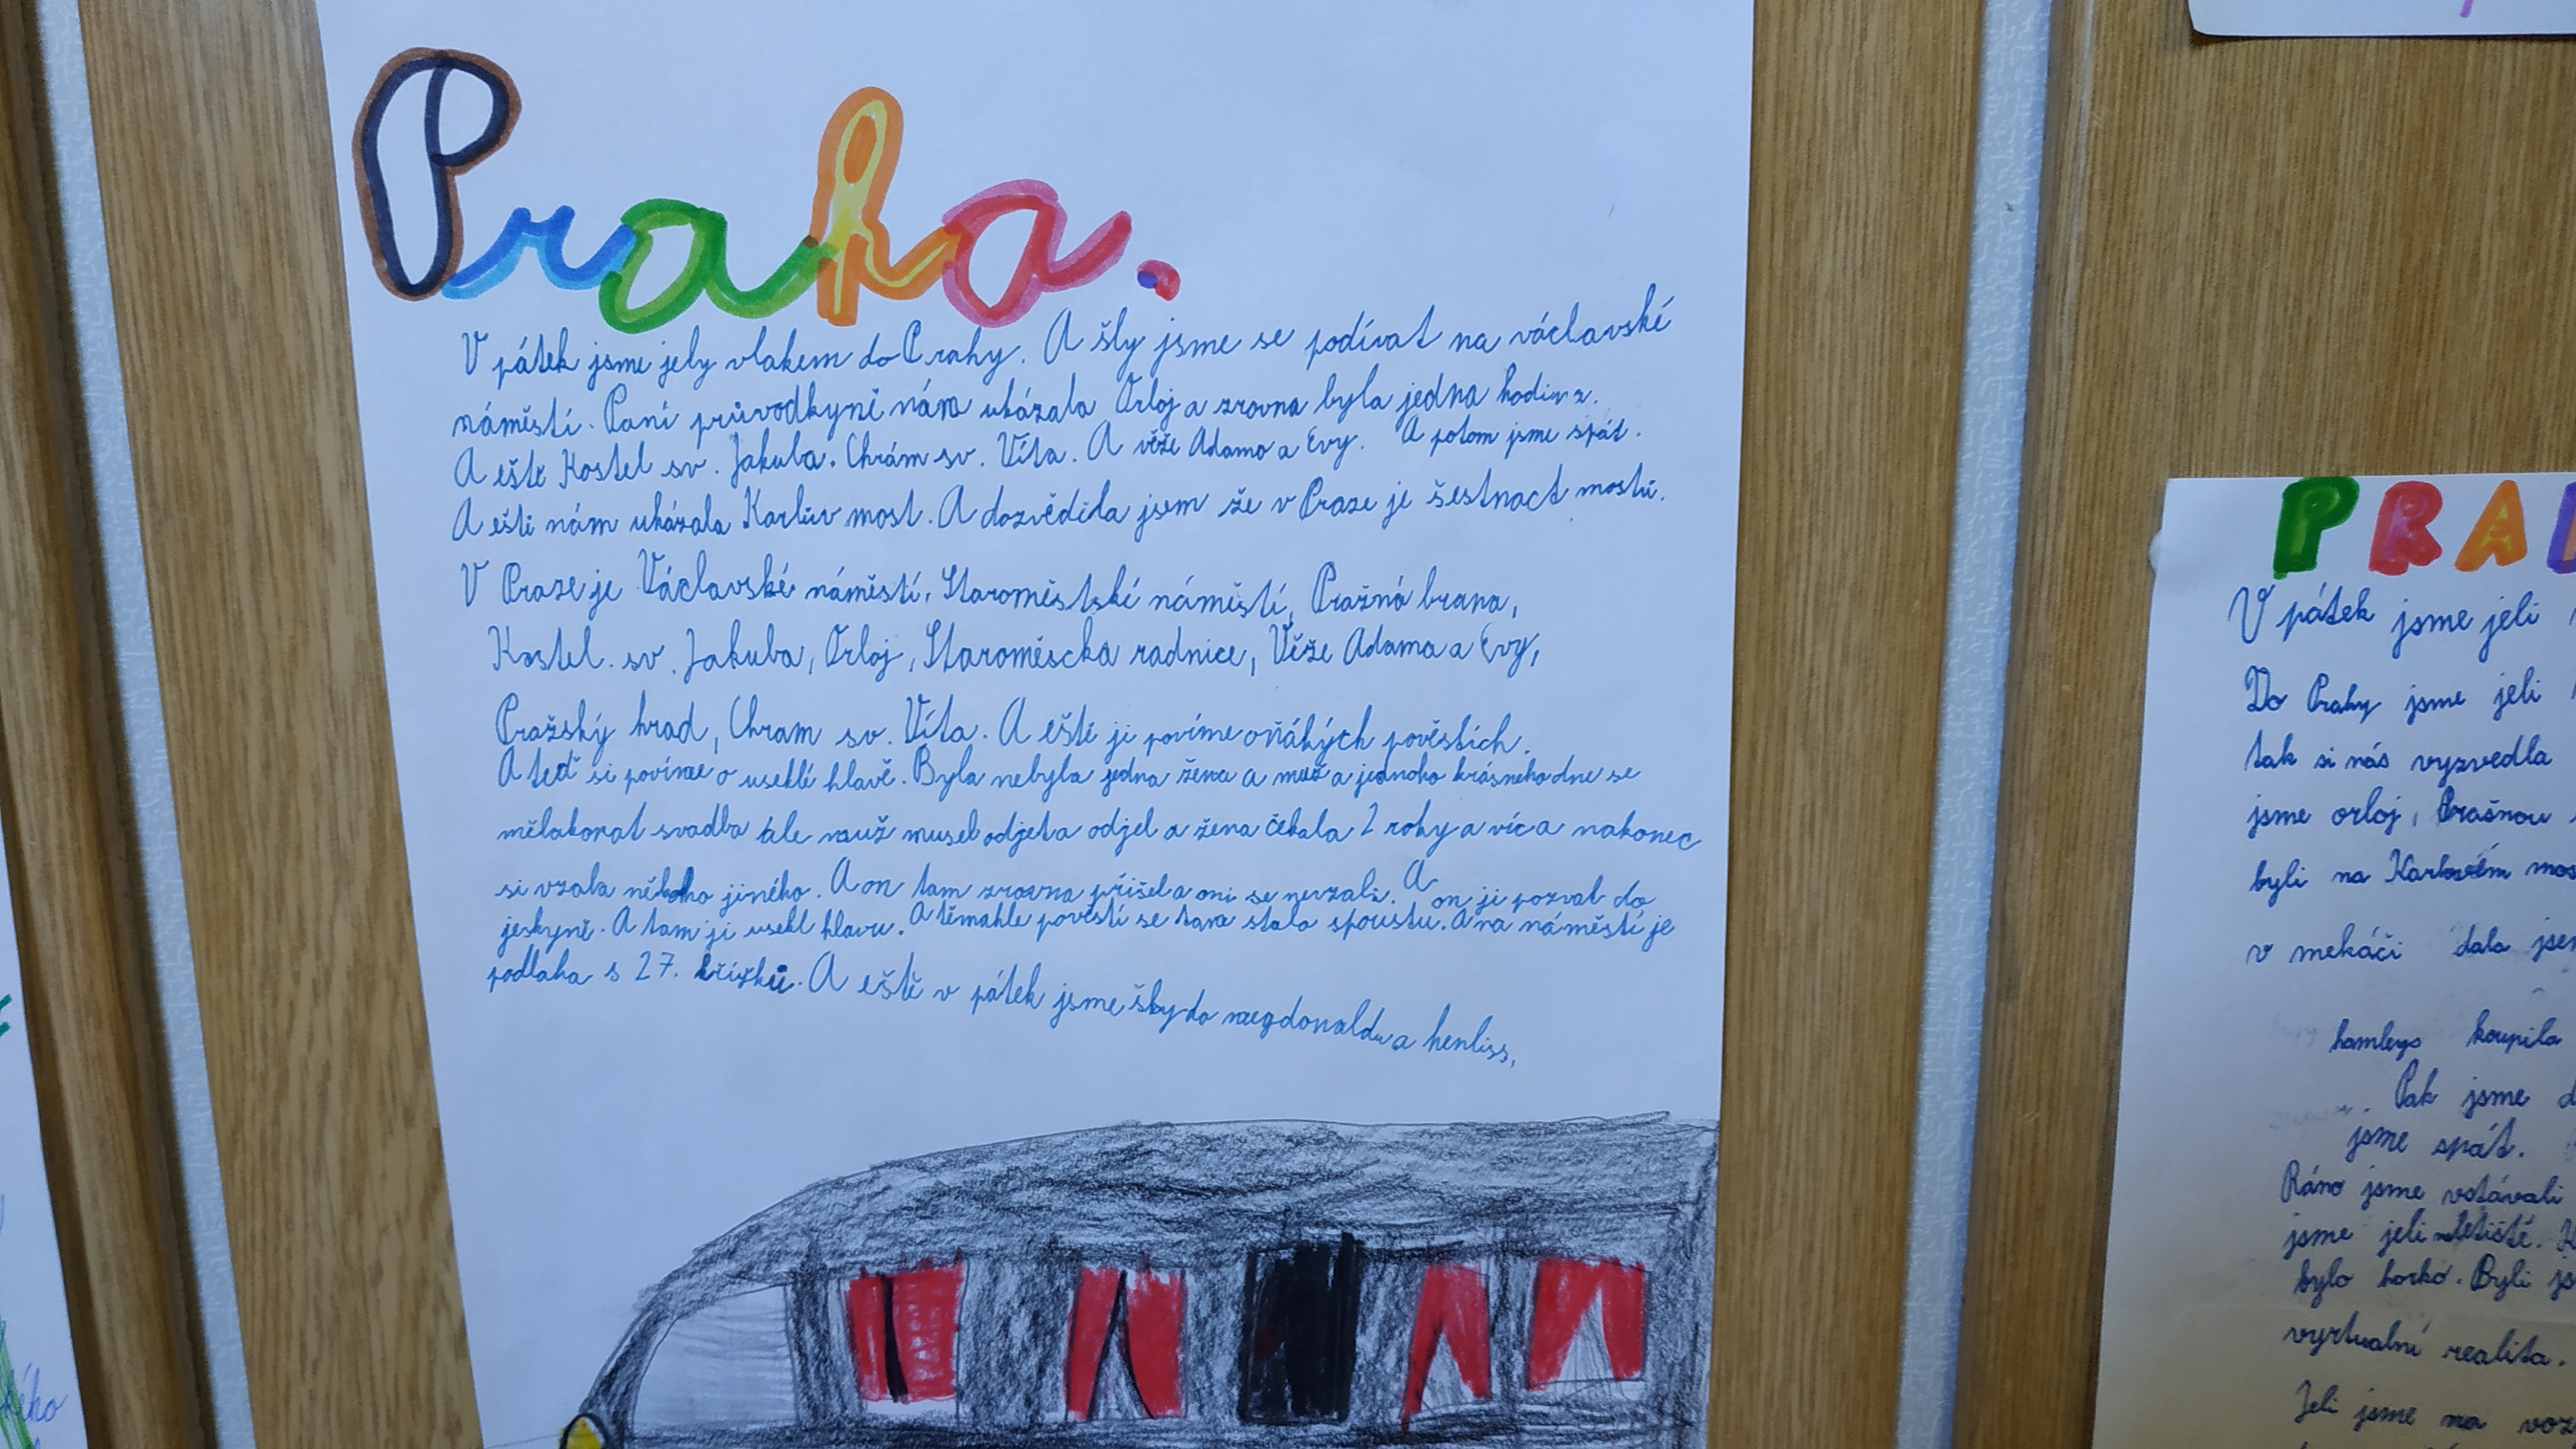 Praha.
V pátek jsme jely vlakem do Prahy. A šly jsme se podívat na václavské
náměstí. Paní průvodkyně nám ukázala Orloj a zrovna byla jedna hodina.
A eště Kostel sv. Jakuba. Chrám sv. Víta. A věže Adama a Evy. A potom jsme spát.
A ešti nám ukázala Karlův most. A dozvěděla jsem že v Praze je šestnact mostů.
V Praze je Václavské náměstí, Staroměstské náměstí, Pražná brana,
Kostel. sv. Jakuba, Orloj, Staroměscka radnice, Věže Adama a Evy,
Pražský hrad, Chram sv. Víta. A eště ji povíme oňákých pověstích.
A teď si povíme o useklí hlavě. Byla nebyla jedna žena a muž a jednoho krásného dne se
měla konat svadba ale muž musel odjet a odjel a žena čekala 2 roky a víc a nakonec
si vzala někoho jiného. A on tam zrovna přišel a oni se nevzali. A on ji pozval do
jeskyně. A tam ji usekl hlavu. A těmahle pověstí se tam stalo spoustu. A na náměstí je
podlaha s 27. křížků. A eště v pátek jsme šly do megdonaldu a henliss,
PRA
V pátek jsme jeli
Do Prahy jsme jeli
tak si nás vyzvedla
jsme orloj, Prašnou
byli na Karlovém mos
v mekáči dala jsem
hamleys koupila
Pak jsme d
jsme spát.
Ráno jsme vstávali
jsme jeli letiště.
bylo horko. Byli js
vyrtualní realita.
Jeli jsme na voz
kého